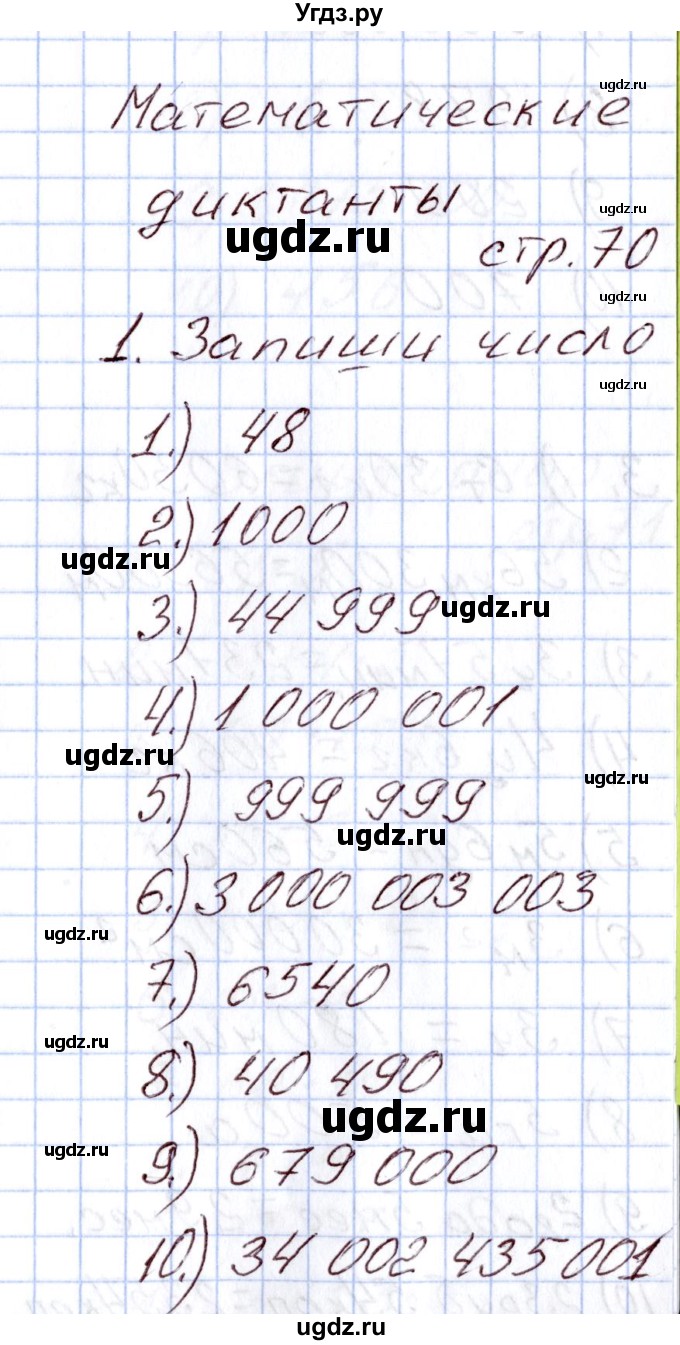 Угдз.ру
ugdz.ru
Математические
диктанты
ugdz.ru
ugdz.ru
стр. 70
ugdz.ru
1. Запиши число
ugdz.ru
1.) 48
2.) 1000
ugdz.ru
3.) 44 999
ugdz.ru
4.) 1 000 001
ugdz.ru
ugdz.ru
5.) 999 999
ugdz.ru
6.) 3 000 003 003
ugdz.ru
7.) 6540
ugdz.ru
8.) 40 490
ugdz.ru
ugdz.ru
9.) 679 000
10.) 34 002 435 001
ugdz.ru